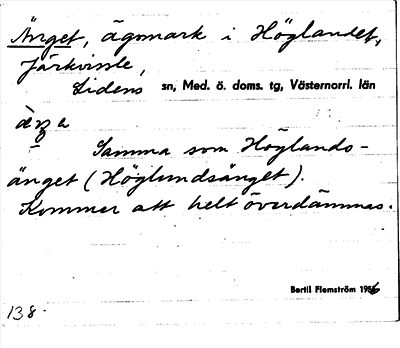 Änget, ägomark i Höglandet,
Järkvissle,
Lidens sn, Med. ö. doms. tg, Västernorrl. län
Samma som Höglands-
änget (Höglundsänget).
Kommer att helt överdämmas.
Bertil Flemström 1956
138.